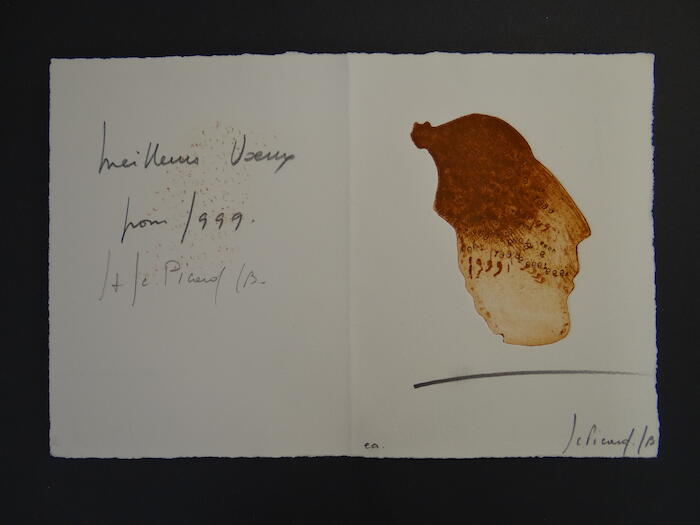 Meilleurs Vœux
pour 1999.
H Jc Picard /B.
1999
ea.
Jc Picard /B